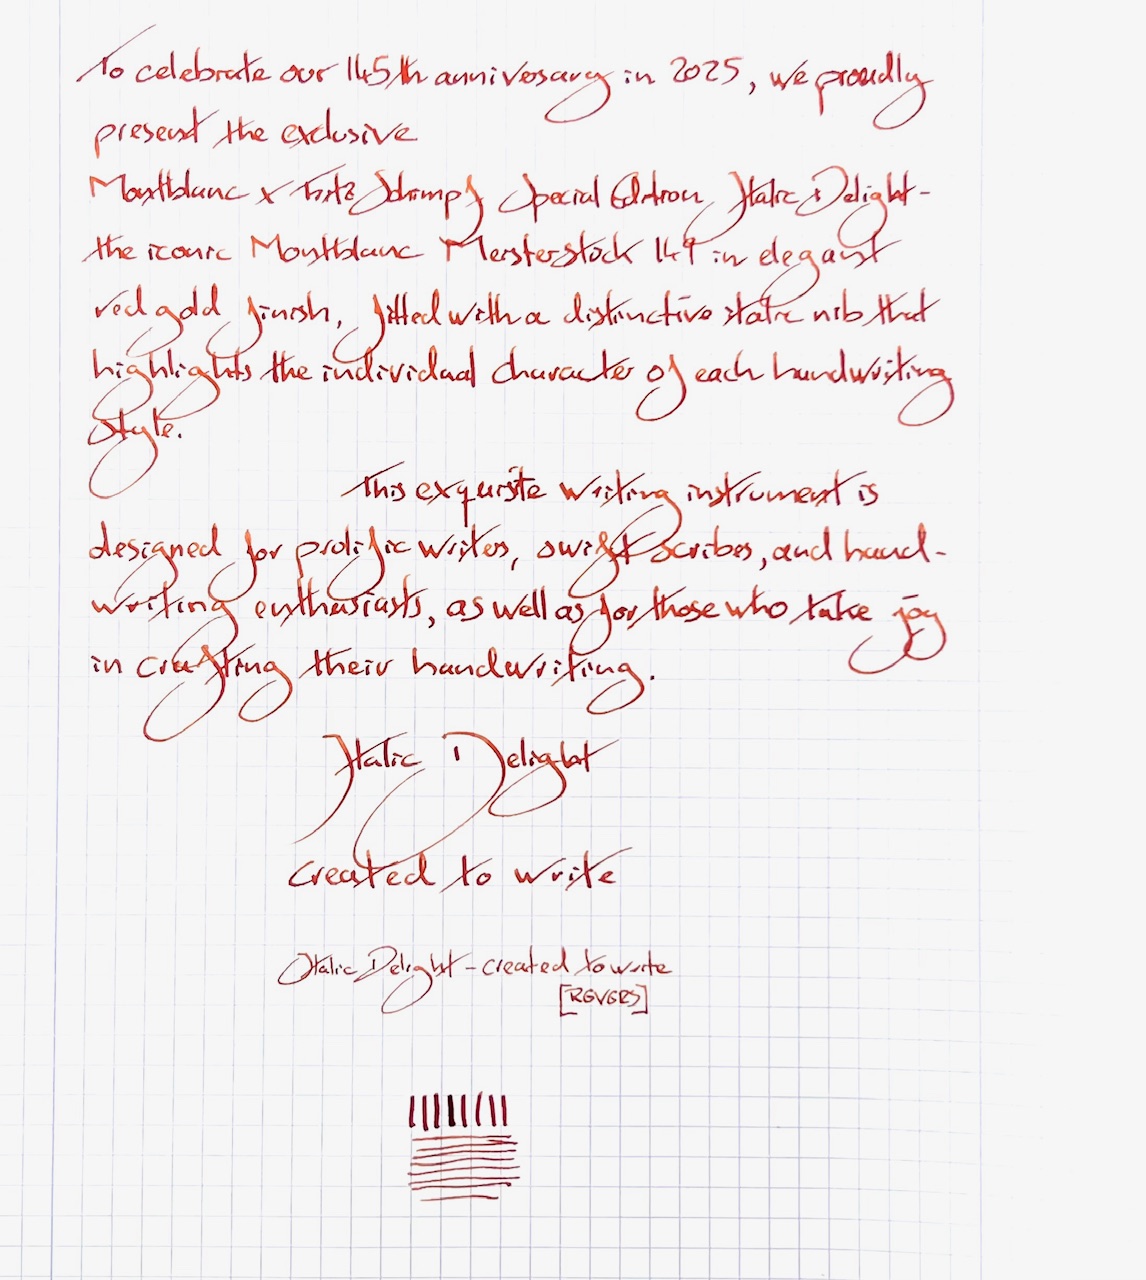 To celebrate our 145th anniversary in 2025, we proudly
present the exclusive
Montblanc x Fritz Schimpf Special Edition Italic Delight -
the iconic Montblanc Meisterstück 149 in elegant
red gold finish, fitted with a distinctive italic nib that
highlights the individual character of each handwriting
style.
This exquisite writing instrument is
designed for prolific writers, swift scribes, and hand-
writing enthusiasts, as well as for those who take joy
in crafting their handwriting.
Italic Delight
created to write
Italic Delight - created to write
[REVERS]